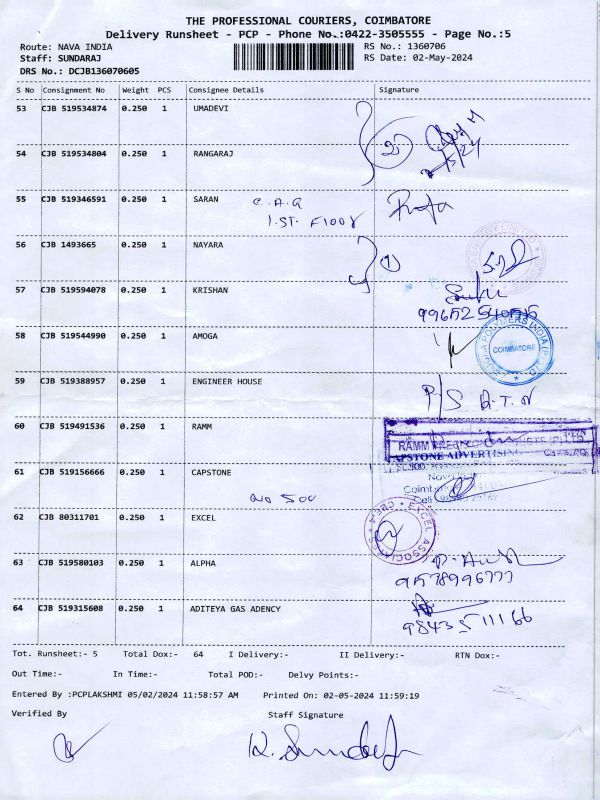 THE PROFESSIONAL COURIERS, COIMBATORE
Delivery Runsheet - PCP - Phone No.:0422-3505555 - Page No.:5
Route: NAVA INDIA RS No.: 1360706
Staff: SUNDARAJ RS Date: 02-May-2024
DRS No.: DCJB136070605
S No Consignment No Weight PCS Consignee Details Signature
53 CJB 519534874 0.250 1 UMADEVI
54 CJB 519534804 0.250 1 RANGARAJ
55 CJB 519346591 0.250 1 SARAN C.A.G
1.ST. Floor
56 CJB 1493665 0.250 1 NAYARA
57 CJB 519594078 0.250 1 KRISHAN
58 CJB 519544990 0.250 1 AMOGA
COIMBATORE
59 CJB 519388957 0.250 1 ENGINEER HOUSE
60 CJB 519491536 0.250 1 RAMM
RAMM
CAPSTONE ADVERTISING
61 CJB 519156666 0.250 1 CAPSTONE
No 500
62 CJB 80311701 0.250 1 EXCEL
EXCEL ASSOCIATES
63 CJB 519580103 0.250 1 ALPHA
9578996777
64 CJB 519315608 0.250 1 ADITEYA GAS ADENCY
98435 11166
Tot. Runsheet:- 5 Total Dox:- 64 I Delivery:- II Delivery:- RTN Dox:-
Out Time:- In Time:- Total POD:- Delvy Points:-
Entered By :PCPLAKSHMI 05/02/2024 11:58:57 AM Printed On: 02-05-2024 11:59:19
Verified By Staff Signature